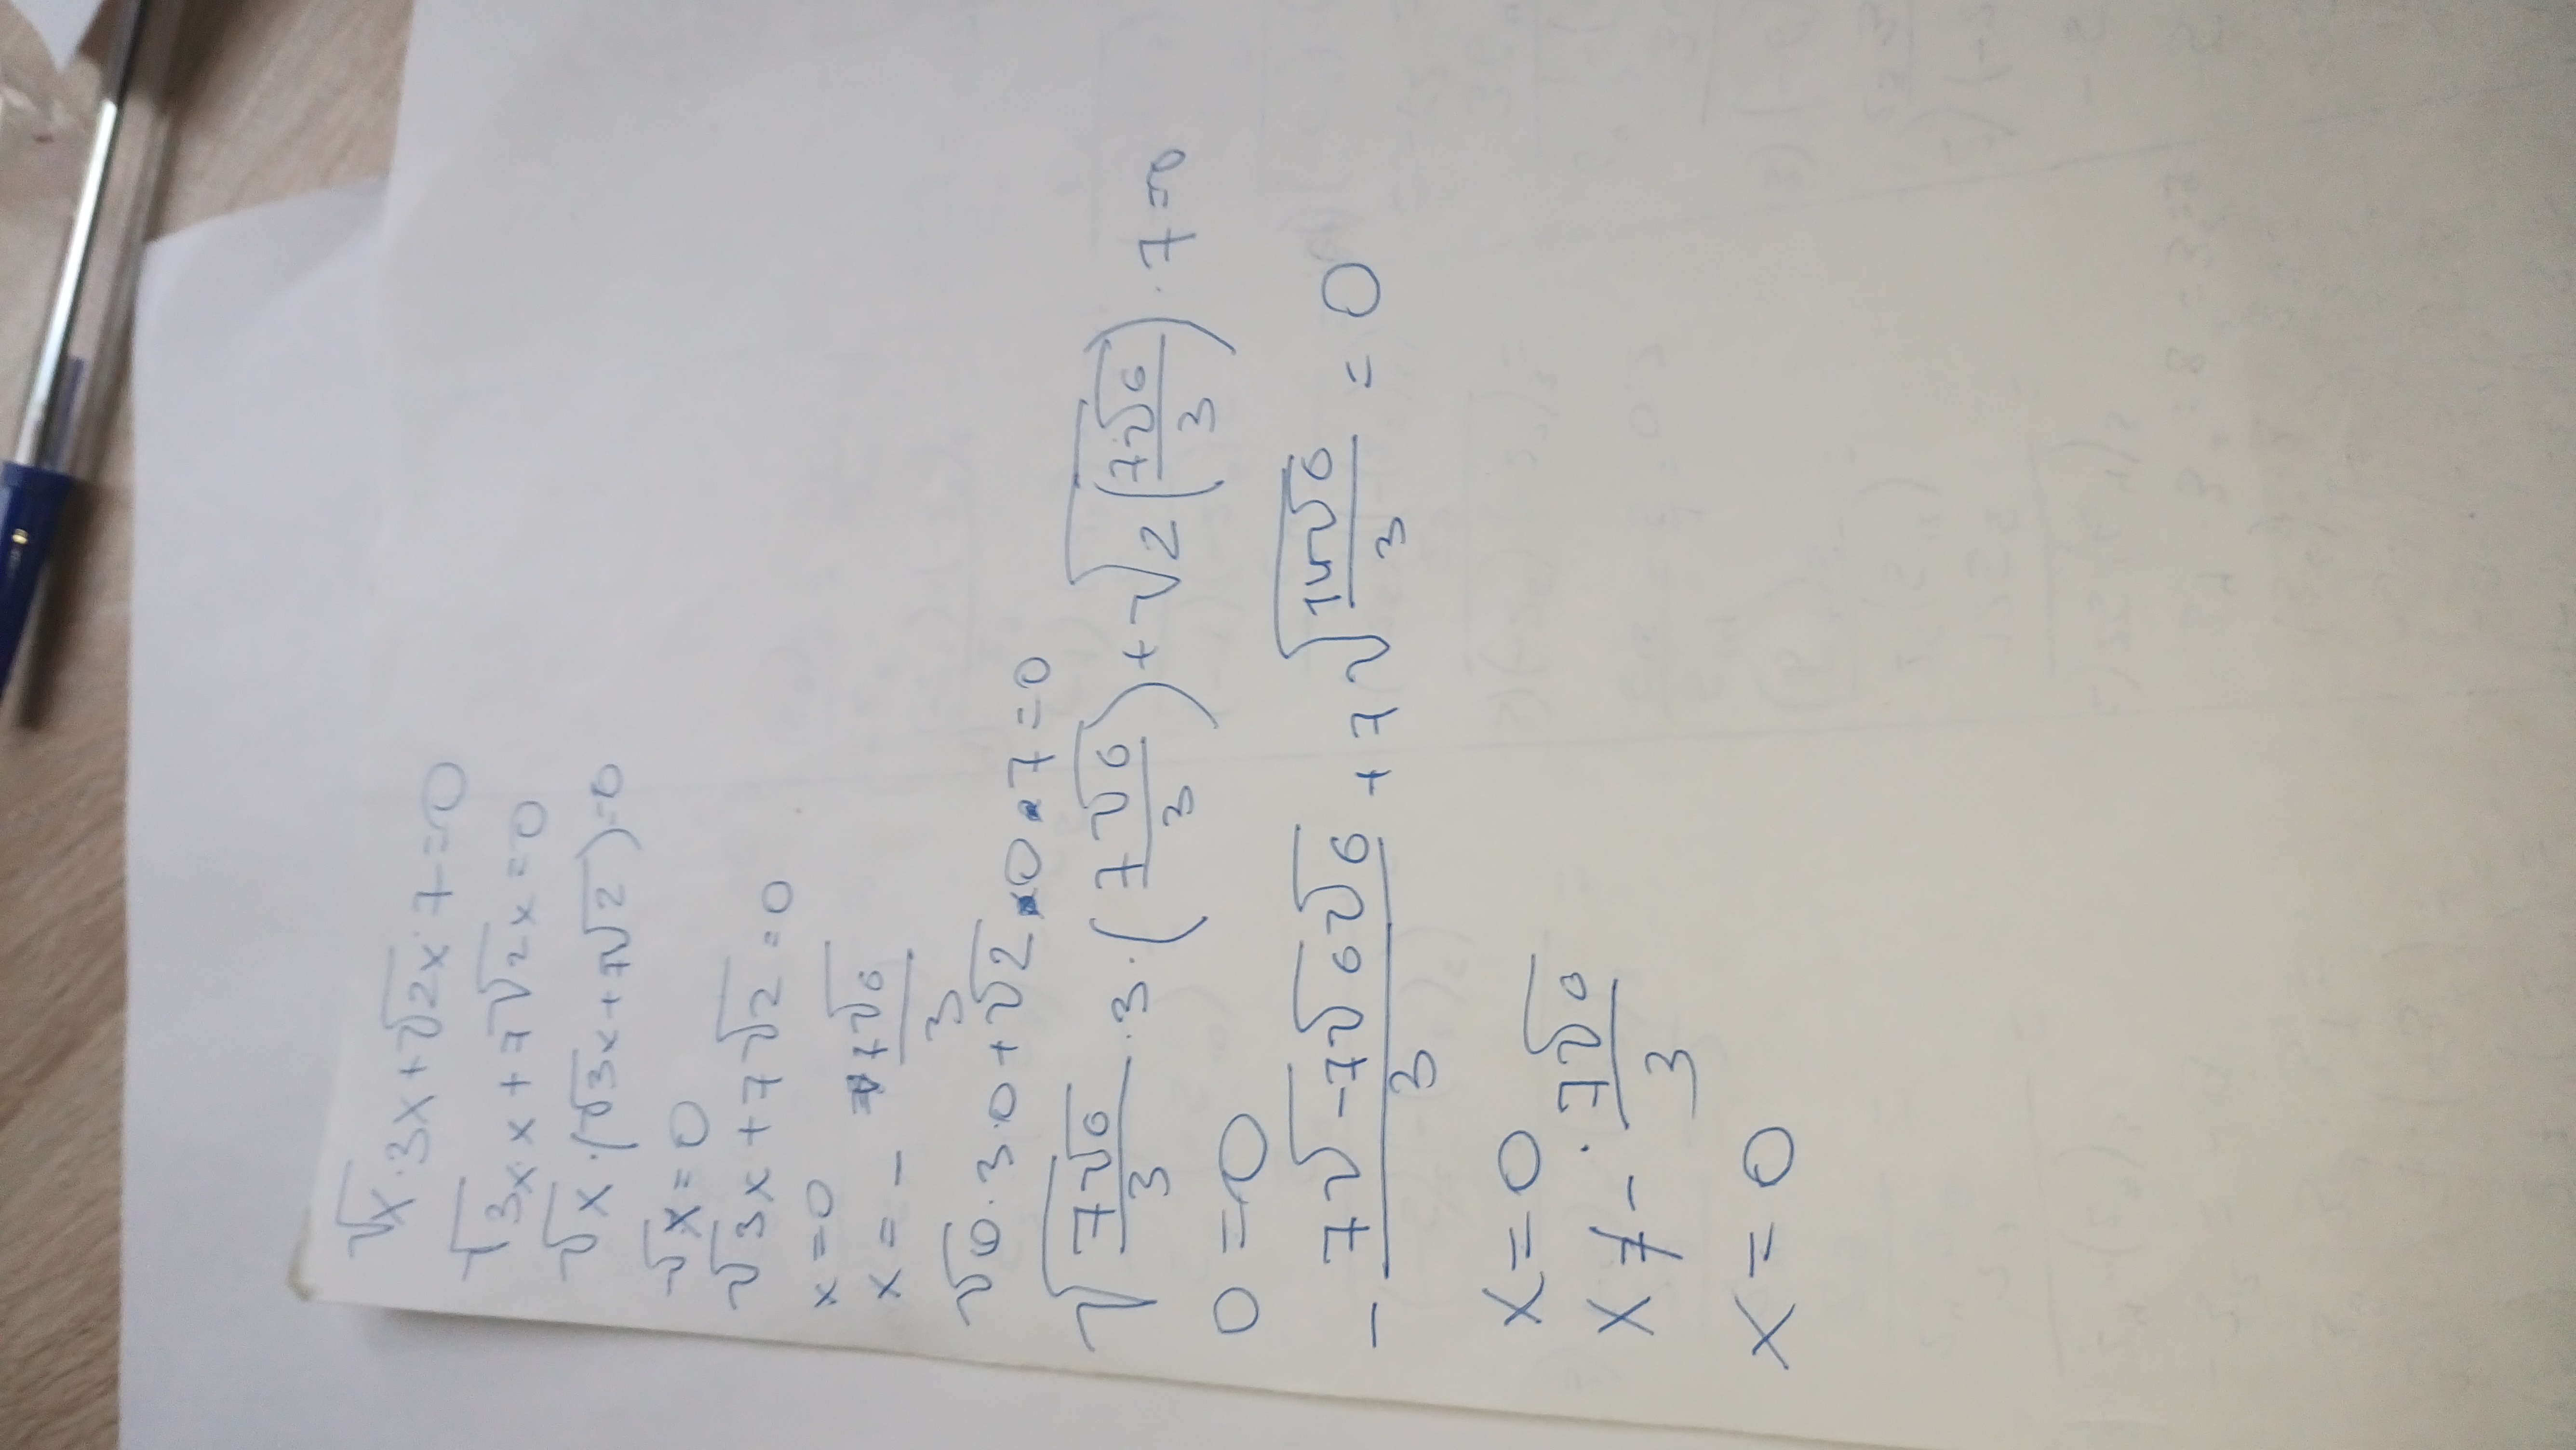 √x · 3x + √2x · 7 = 0
√3x · x + 7√2x = 0
√x · (√3x + 7√2) = 0
√x = 0
√3x + 7√2 = 0
x = 0
x = - 7√6/3
√0 · 3 · 0 + √2 · 0 · 7 = 0
√(7√6/3) · 3 · (7√6/3) + √(2(7√6/3)) · 7 = 0
0 = 0
- 7√-7√6√6/3 + 7√(14√6/3) = 0
x = 0
x ≠ - 7√6/3
x = 0